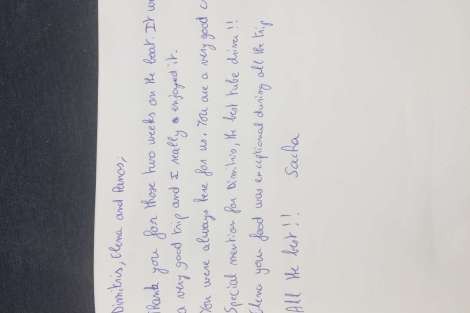 Dimitris, Elena and Panos,
Thank you for those two weeks on the boat. It w
a very good trip and I really enjoyed it.
You were always here for us. You are a very good c
Special mention for Dimitris, the best tube driver !!
Elena your food was exceptional during all the trip
All the best !! Sacha